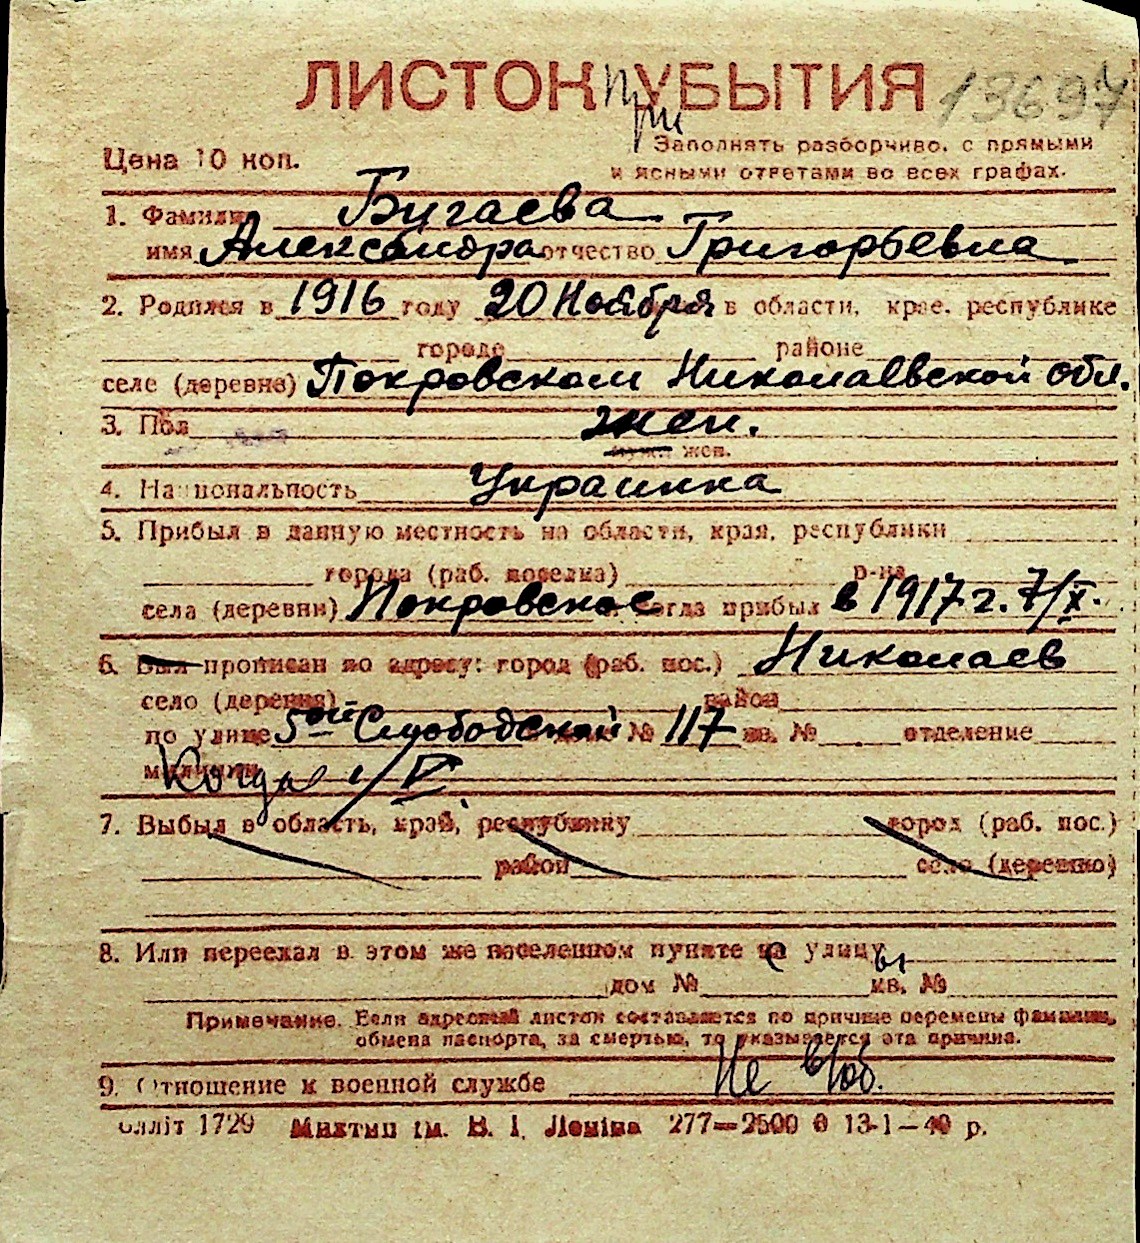 ЛИСТОК УБЫТИЯ 13697
при
Цена 10 коп.
Заполнять разборчиво, с прямыми
и ясными ответами во всех графах.
1. Фамилия Бугаева
имя Александра отчество Григорьевна
2. Родился в 1916 году 20 Ноября в области, крае, республике
городе районе
селе (деревне) Покровском Николаевской обл.
3. Пол жен.
муж. жен.
4. Национальность Украинка
5. Прибыл в данную местность из области, края, республики
города (раб. поселка) р-на
села (деревни) Покровское когда прибыл в 1917 г. 7/X.
6. Был прописан по адресу: город (раб. пос.) Николаев
село (деревня) район
по улице 5ой Слободской дом № 117 кв. № отделение
милиции Когда 1/V
7. Выбыл в область, край, республику город (раб. пос.)
район село (деревню)
8. Или переехал в этом же населенном пункте на улицу
дом № кв. №
Примечание. Если адресный листок составляется по причине перемены фамилии,
обмена паспорта, за смертью, то указывается эта причина.
9. Отношение к военной службе Не в/об.
блліт 1729 Миктип ім. В. І. Леніна 277—2500 0 13-1—40 р.